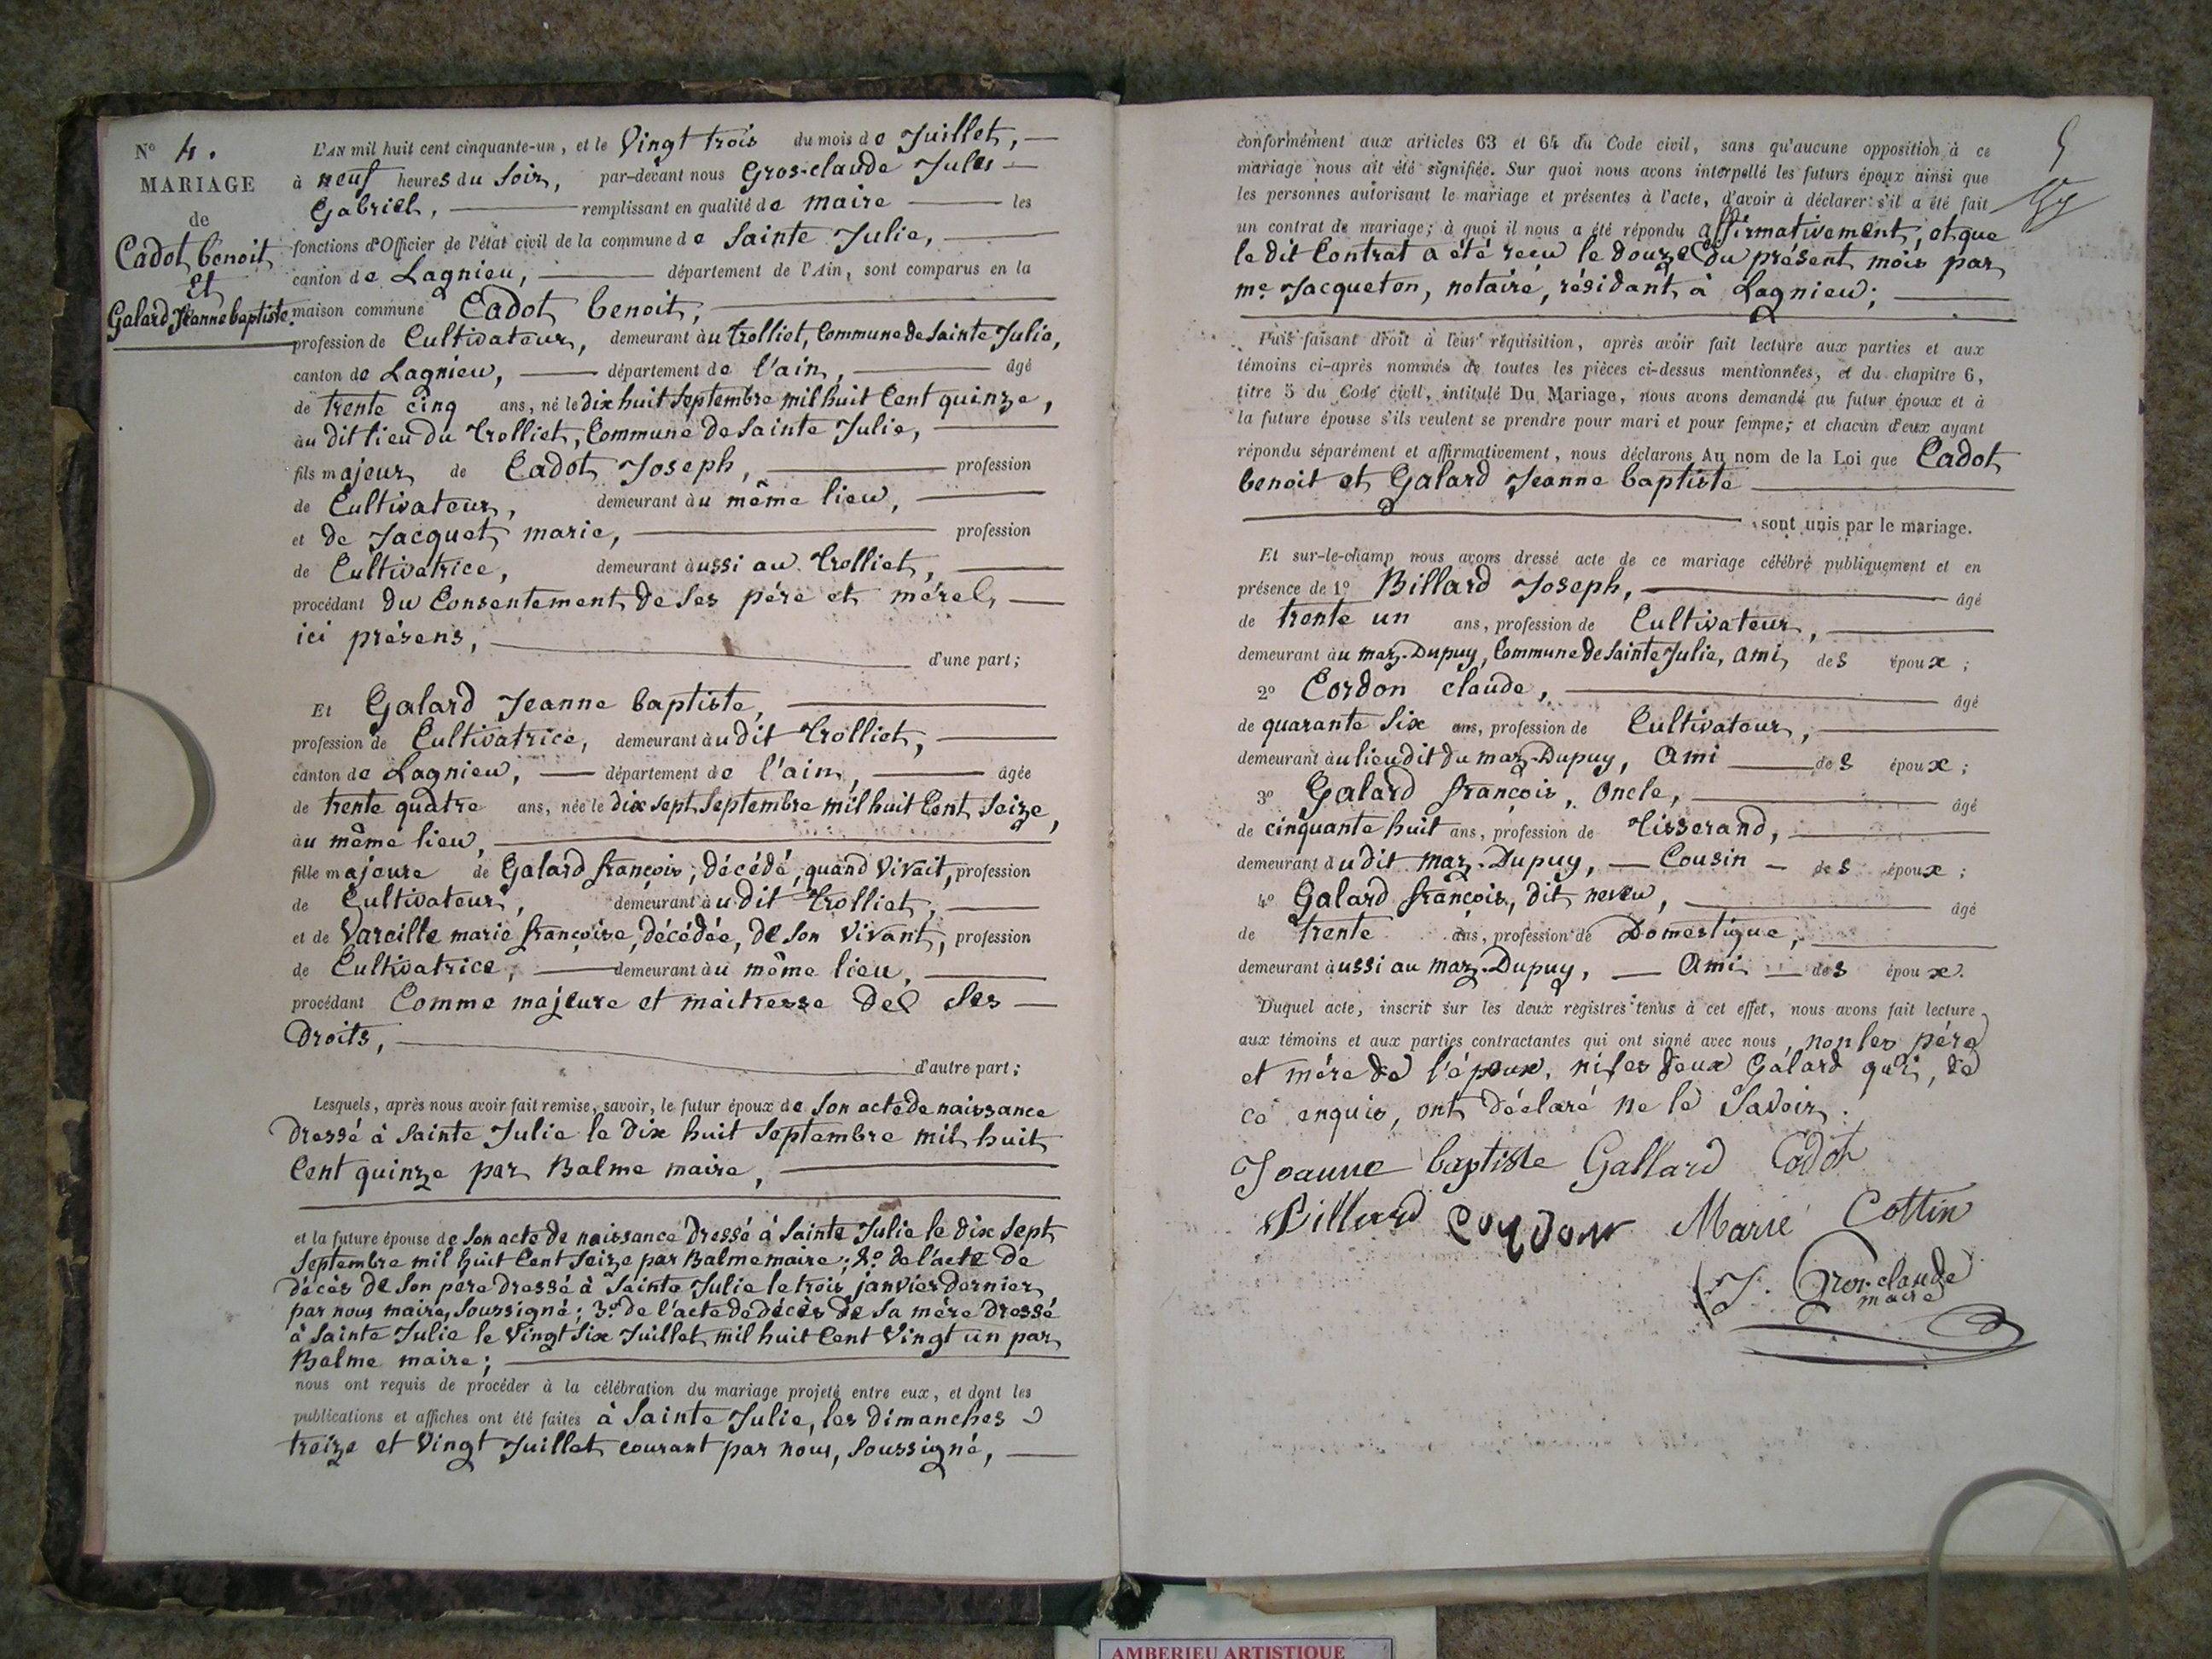 N° 4.
MARIAGE
de
Cadot benoit
et
Galard Jeanne baptiste.
L'AN mil huit cent cinquante-un, et le Vingt trois du mois de Juillet,
à neuf heures du Soir, par-devant nous Gros-claude Jules
Gabriel, remplissant en qualité de maire les
fonctions d'Officier de l'état civil de la commune de Sainte Julie,
canton de Lagnieu, département de l'Ain, sont comparus en la
maison commune Cadot benoit,
profession de Cultivateur, demeurant au trolliet, Commune de Sainte Julie,
canton de Lagnieu, département de l'ain, âgé
de trente cinq ans, né le dix huit Septembre mil huit Cent quinze,
au dit lieu du trolliet, Commune de Sainte Julie,
fils majeur de Cadot Joseph, profession
de Cultivateur, demeurant au même lieu,
et de Jacquet marie, profession
de Cultivatrice, demeurant aussi au trolliet,
procédant du Consentement de Ses père et mère,
ici présens,
d'une part;
Et Galard Jeanne baptiste,
profession de Cultivatrice, demeurant au dit trolliet,
canton de Lagnieu, département de l'ain, âgée
de trente quatre ans, née le dix sept Septembre mil huit Cent Seize,
au même lieu,
fille majeure de Galard françois, décédé, quand Vivait, profession
de Cultivateur, demeurant au dit trolliet,
et de Vareille marie françoise, décédée, de Son Vivant, profession
de Cultivatrice, demeurant au même lieu,
procédant Comme majeure et maitresse de Ses
Droits,
d'autre part;
Lesquels, après nous avoir fait remise, savoir, le futur époux de Son acte de naissance
Dressé à Sainte Julie le dix huit Septembre mil huit
Cent quinze par Balme maire,
et la future épouse de Son acte de naissance Dressé à Sainte Julie le dix Sept
Septembre mil huit Cent Seize par Balme maire; 2° de l'acte de
décès de Son père dressé à Sainte Julie le trois janvier dernier
par nous maire, Soussigné; 3° de l'acte de décès de Sa mère Dressé
à Sainte Julie le Vingt Six Juillet mil huit Cent Vingt un par
Balme maire;
nous ont requis de procéder à la célébration du mariage projeté entre eux, et dont les
publications et affiches ont été faites à Sainte Julie, les dimanches
treize et Vingt Juillet courant par nous, Soussigné,
5
conformément aux articles 63 et 64 du Code civil, sans qu'aucune opposition à ce
mariage nous ait été signifiée. Sur quoi nous avons interpellé les futurs époux ainsi que
les personnes autorisant le mariage et présentes à l'acte, d'avoir à déclarer s'il a été fait
un contrat de mariage; à quoi il nous a été répondu affirmativement, et que
le dit Contrat a été reçu le douze du présent mois par
me Jacqueton, notaire, résidant à Lagnieu;
Puis faisant droit à leur réquisition, après avoir fait lecture aux parties et aux
témoins ci-après nommés de toutes les pièces ci-dessus mentionnées, et du chapitre 6,
titre 5 du Code civil, intitulé Du Mariage, nous avons demandé au futur époux et à
la future épouse s'ils veulent se prendre pour mari et pour femme; et chacun d'eux ayant
répondu séparément et affirmativement, nous déclarons Au nom de la Loi que Cadot
benoit et Galard Jeanne baptiste
sont unis par le mariage.
Et sur-le-champ nous avons dressé acte de ce mariage célébré publiquement et en
présence de 1° Billard Joseph, âgé
de trente un ans, profession de Cultivateur,
demeurant au maz-Dupuy, Commune de Sainte Julie, ami des époux;
2° Cordon claude, âgé
de quarante Six ans, profession de Cultivateur,
demeurant au lieu dit du maz-Dupuy, Ami des époux;
3° Galard françois, Oncle, âgé
de cinquante huit ans, profession de tisserand,
demeurant au dit maz-Dupuy, Cousin des époux;
4° Galard françois, dit neveu, âgé
de trente ans, profession de Domestique,
demeurant aussi au maz-Dupuy, Ami des époux.
Duquel acte, inscrit sur les deux registres tenus à cet effet, nous avons fait lecture
aux témoins et aux parties contractantes qui ont signé avec nous, non les père
et mère de l'époux, ni les deux Galard qui, de
ce enquis, ont déclaré ne le Savoir.
Joanne baptiste Gallard Cadot
Billard Cordon Marie Cottin
J. Gros-claude
maire
AMBERIEU ARTISTIQUE